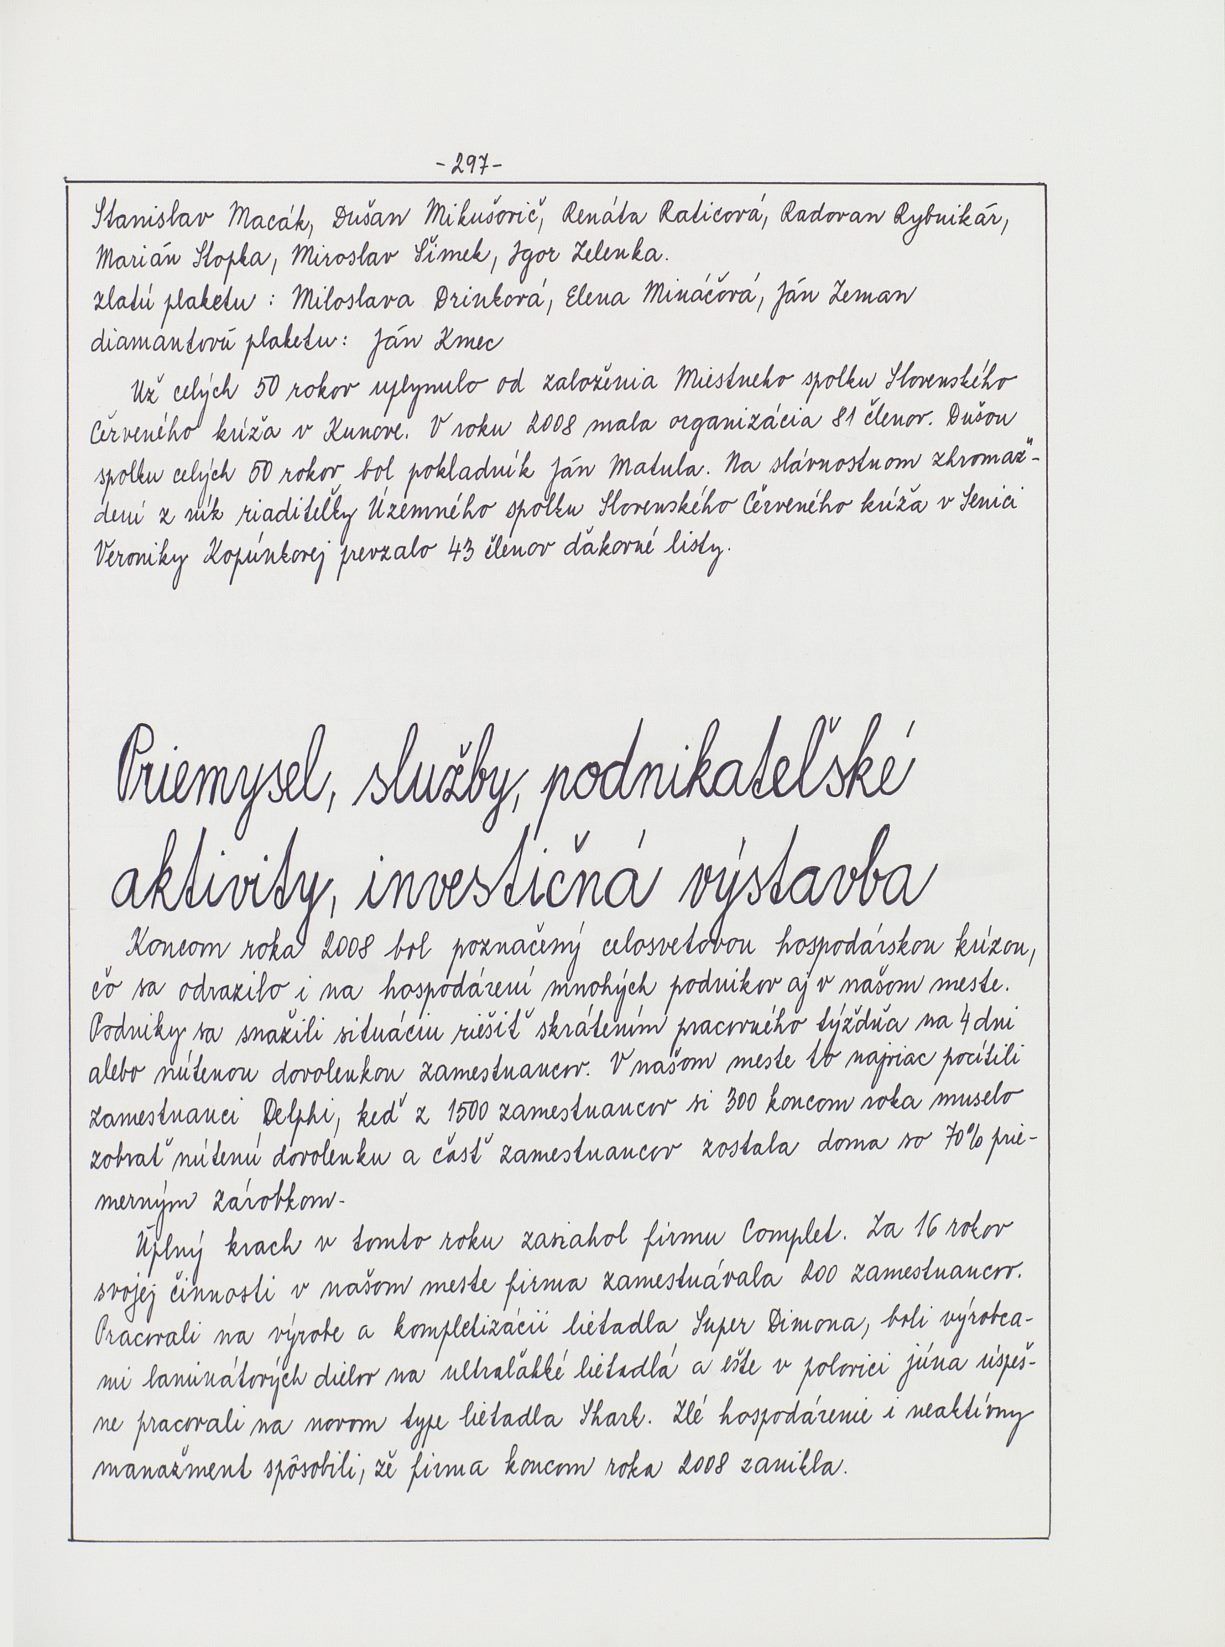 -297-
Stanislav Macák, Dušan Mikušovič, Renáta Raticová, Radovan Rybnikár,
Marián Stopka, Miroslav Šimek, Igor Zelenka.
zlatú plaketu : Miloslava Drinková, Elena Mináčová, Ján Zeman
diamantovú plaketu: Ján Kmec
Už celých 50 rokov uplynulo od založenia Miestneho spolku Slovenského
Červeného kríža v Kunove. V roku 2008 mala organizácia 81 členov. Dušou
spolku celých 50 rokov bol pokladník Ján Matula. Na slávnostnom zhromaž-
dení z rúk riaditeľky Územného spolku Slovenského Červeného kríža v Senici
Veroniky Kopúnkovej prevzalo 43 členov ďakovné listy.
Priemysel, služby, podnikateľské
aktivity, investičná výstavba
Koncom roka 2008 bol poznačený celosvetovou hospodárskou krízou,
čo sa odrazilo i na hospodárení mnohých podnikov aj v našom meste.
Podniky sa snažili situáciu riešiť skrátením pracovného týždňa na 4 dni
alebo nútenou dovolenkou zamestnancov. V našom meste to najviac pocítili
zamestnanci Delphi, keď z 1500 zamestnancov si 300 koncom roka muselo
zobrať nútenú dovolenku a časť zamestnancov zostala doma so 70% prie-
merným zárobkom.
Úplný krach v tomto roku zasiahol firmu Complet. Za 16 rokov
svojej činnosti v našom meste firma zamestnávala 200 zamestnancov.
Pracovali na výrobe a kompletizácii lietadla Super Dimona, boli výrobca-
mi laminátových dielov na ultraľahké lietadlá a ešte v polovici júna úspeš-
ne pracovali na novom type lietadla Shark. Zlé hospodárenie i neaktívny
manažment spôsobili, že firma koncom roka 2008 zanikla.